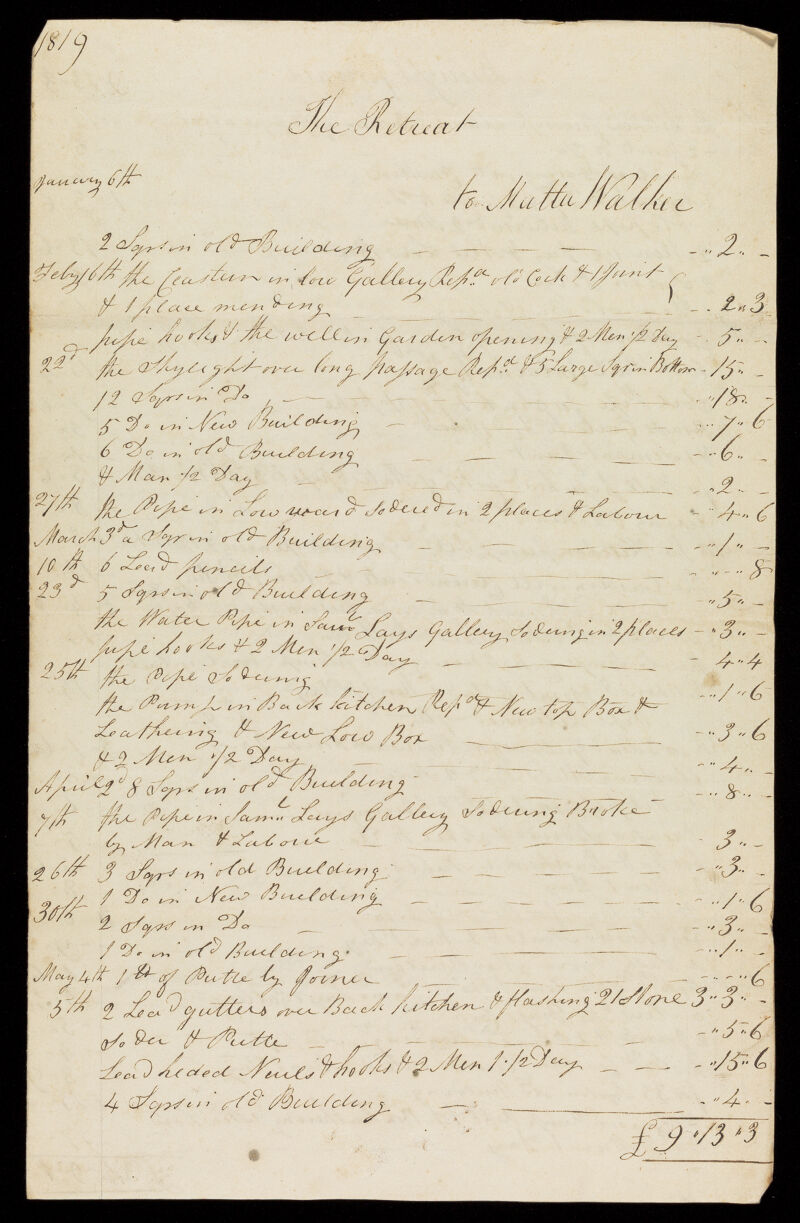 1819
The Retreat
January 6th
to Matta Walker
2 Sqrs in old Building - " 2 " -
Feby 16th the Ceastern in low Gallery Repd old Cock & 1 Joint
& 1 place mending - " 2 " 3
pipe hooks & the well in Garden opening & 2 Men 1/2 Day - " 5 " -
22d the Skylight over long passage Repd & 5 Large Sqrs in Bottom - " 15 " -
12 Sqrs in Do - " 18 " -
5 Do in New Building - " 7 " 6
6 Do in old Building - " 6 " -
& Man 1/2 Day - " 2 " -
27th the Pipe in Low ward Sodered in 2 places & Labour - " 4 " 6
March 3d a Sqr in old Building - " 1 " -
10th 6 Lead pencils - " - " 8
23d 5 Sqrs in old Building - " 5 " -
the Water Pipe in Saml Lays Gallery Sodering in 2 places - " 3 " -
pipe hooks & 2 Men 1/2 Day - 4 " 4
25th the Pipe Sodering - " 1 " 6
the Pump in Back kitchen Repd & New top Box &
Leathering & New Low Box - " 3 " 6
& 2 Men 1/2 Day - " 4 " -
April 2d 8 Sqrs in old Building - " 8 " -
7th the Pipe in Saml Lays Gallery Sodering Broke
by Man & Labour 3 " -
26th 3 Sqrs in old Building - " 3 " -
1 Do in New Building - " 1 " 6
30th 2 Sqrs in Do - " 3 " -
1 Do in old Building - " 1 " -
May 4th 1 lb of Putte by Joiner - " - " 6
5th 2 Lead gutters over Back kitchen & flashing 21 Stone 3 " 3 " -
Soder & Putte - " 5 " 6
Lead heded Neils & hooks & 2 Men 1 1/2 Day - " 15 " 6
4 Sqrs in old Building - " 4 " -
£ 9 " 13 " 3